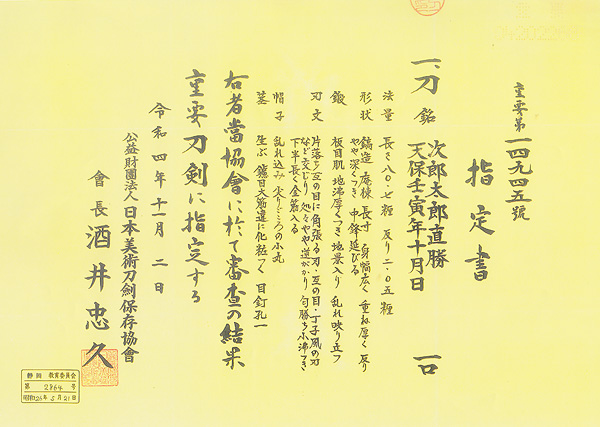 重要第一四九四五號
指定書
一、刀 銘 次郎太郎直勝 一口
天保壬寅年十月日
法量 長さ八〇・七糎 反り二・〇五糎
形状 鎬造 庵棟 長寸 身幅広く 重ね厚く 反り
やや深くつき 中鋒延びる
鍛 板目肌 地沸厚くつき 地景入り 乱れ映り立つ
刃文 片落ち互の目に角張る刃・互の目・丁子風の刃
など交じり 処々やや逆がかり 匂勝ち小沸つき
下半長く金筋入る
帽子 乱れ込み 尖りごころの小丸
茎 生ぶ 鑢目大筋違に化粧つく 目釘孔一
右者當協會に於て審査の結果
重要刀剣に指定する
令和四年十一月二日
公益財團法人日本美術刀劍保存協會
會長 酒井忠久
静岡 教育委員会
第 2864 号
昭和26年5月21日